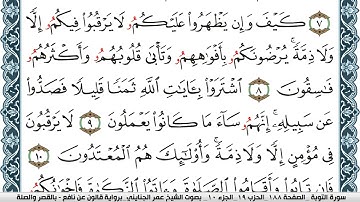 ٧ كَيْفَ وَإِن يَظْهَرُواْ عَلَيْكُمُۥ لَا يَرْقُبُواْ فِيكُمُۥٓ إِلّٗا
وَلَا ذِمَّةٗۖ يُرْضُونَكُمُۥ بِأَفْوَٰهِهِمُۥ وَتَأْبَىٰ قُلُوبُهُمُۥ وَأَكْثَرُهُمُۥ
فَٰسِقُونَ ٨ اَشْتَرَوْاْ بِـَٔايَٰتِ اِللَّهِ ثَمَنٗا قَلِيلٗا فَصَدُّواْ
عَن سَبِيلِهِۦٓۖ إِنَّهُمُۥ سَآءَ مَا كَانُواْ يَعْمَلُونَ ٩ لَا يَرْقُبُونَ
فِي مُؤْمِنٍ إِلّٗا وَلَا ذِمَّةٗۖ وَأُوْلَٰٓئِكَ هُمُ اُلْمُعْتَدُونَ ١٠
فَإِن تَابُواْ وَأَقَامُواْ اُلصَّلَوٰةَ وَءَاتَوُاْ اُلزَّكَوٰةَ فَإِخْوَٰنُكُمُۥ
سورة التوبة الصفحة ١٨٨ الحزب ١٩ الجزء ١٠ بصوت الشيخ عمر الجنايني برواية قالون عن نافع - بالقصر والصلة